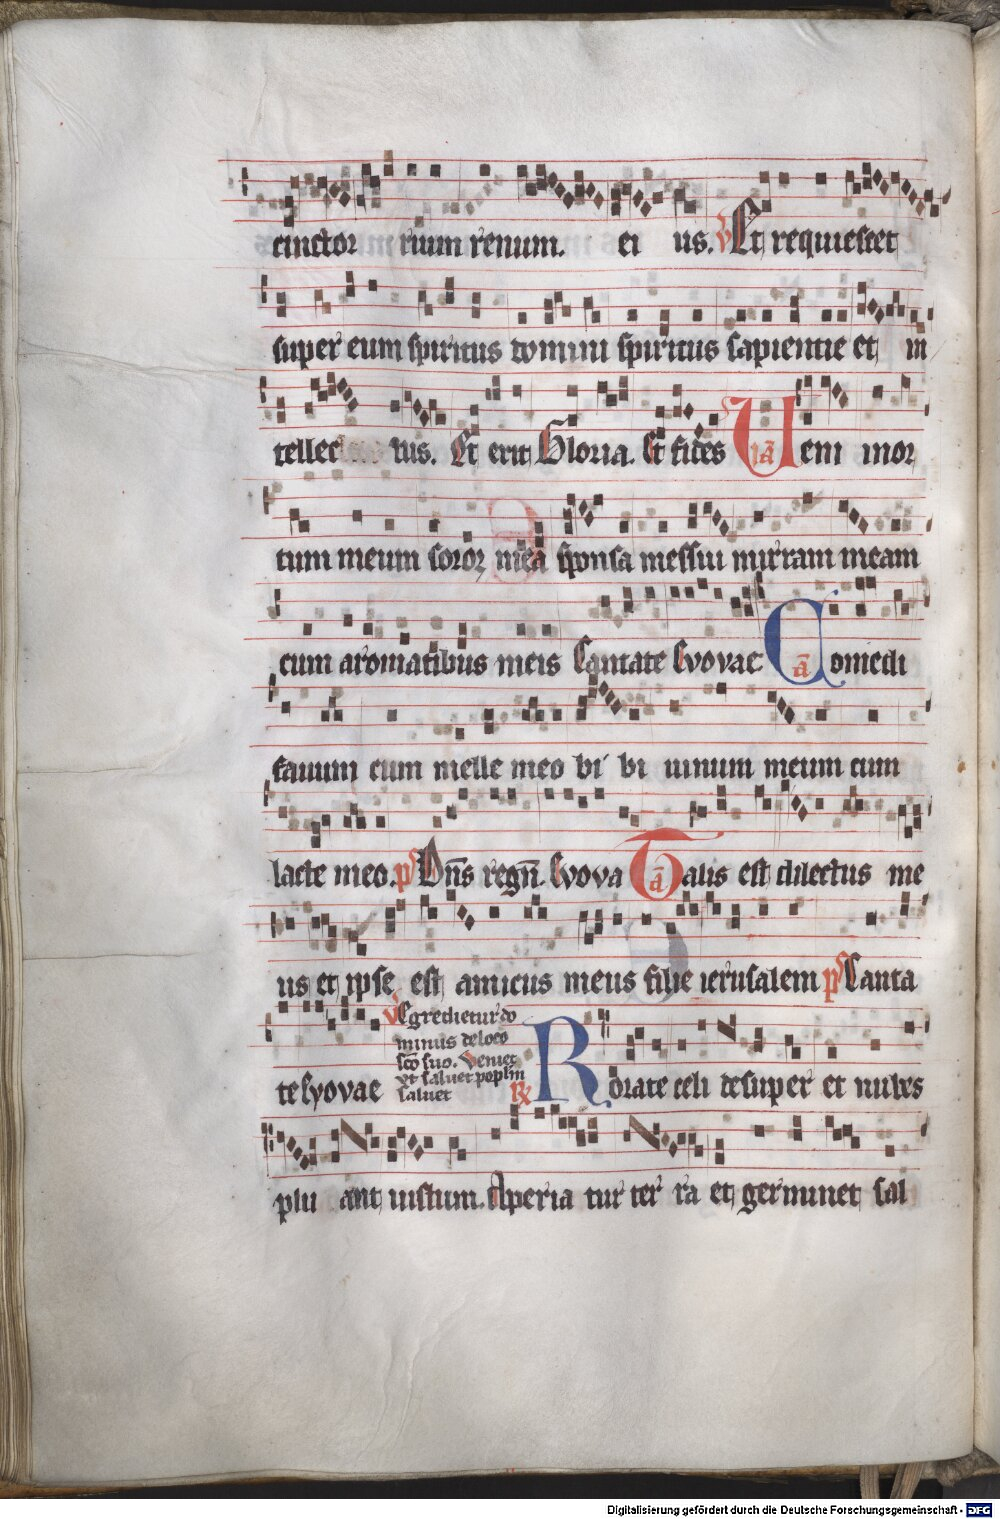 cinctor rium renum. ei us. V Et requiescet
super eum spiritus domini spiritus sapientie et in
tellec tus. Et erit Gloria. Et fides Ueni in or
tum meum soror mea sponsa messui mirram meam
cum aromatibus meis Cantate Evovae Comedi
fauum cum melle meo bi bi uinum meum cum
lacte meo. ps Dns regn. Evova Talis est dilectus me
us et ipse est amicus meus filie ierusalem ps Canta
te Evovae
V Egredietur do
minus de loco
sco suo. Veniet
vt saluet poplm
saluet R
Rorate celi desuper et nubes
plu ant iustum. Aperia tur ter ra et germinet sal
Digitalisierung gefördert durch die Deutsche Forschungsgemeinschaft - DFG